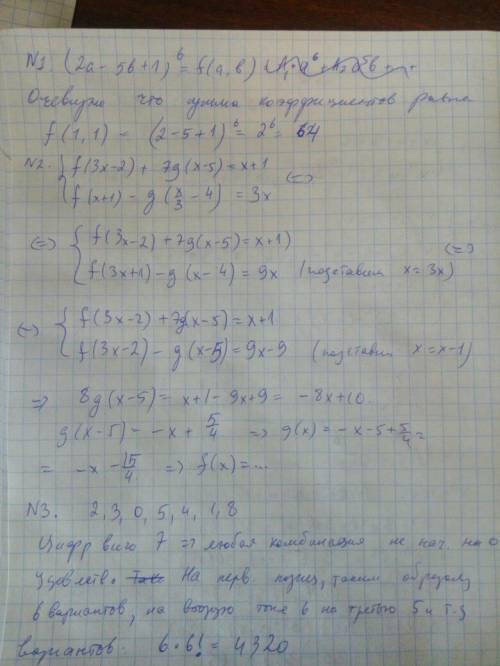 N1. (2a-5b+1)⁶ = f(a,b)
Очевидно что сумма коэффициентов равна
f(1,1) = (2-5+1)⁶ = 2⁶ = 64
N2. { f(3x-2) + 7g(x-5) = x+1
f(x+1) - g(x/3 - 4) = 3x (=)
(=) { f(3x-2) + 7g(x-5) = x+1) (=)
f(3x+1) - g(x-4) = 9x (подставим x=3x)
(=) { f(3x-2) + 7g(x-5) = x+1
f(3x-2) - g(x-5) = 9x-9 (подставим x=x-1)
=> 8g(x-5) = x+1-9x+9 = -8x+10.
g(x-5) = -x + 5/4 => g(x) = -x-5+5/4 =
= -x - 15/4 => f(x) = ...
N3. 2,3,0,5,4,1,8
Цифр всего 7 => любая комбинация не нач. на 0
удовлетв. На перв. позиц, таким образом,
6 вариантов, на вторую тоже 6 на третью 5 и т.д
вариантов. 6·6! = 4320